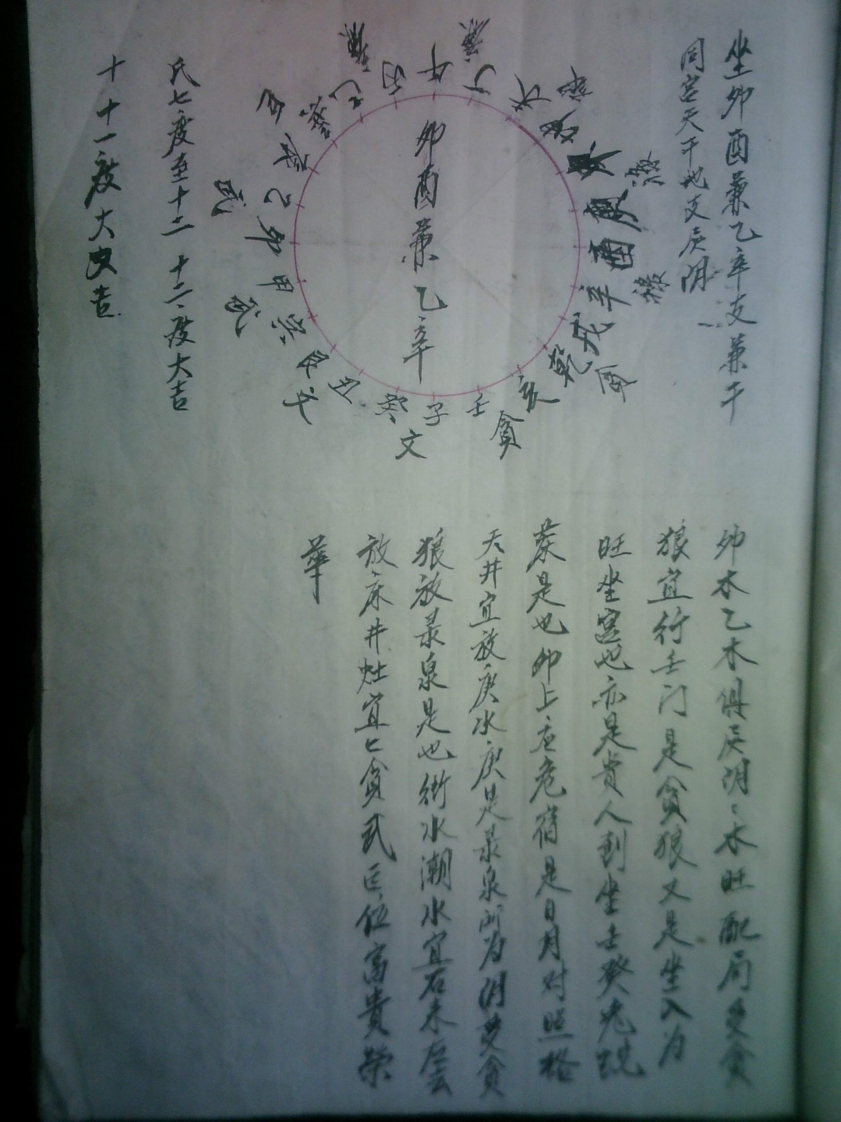 坐卯酉兼乙辛支兼干
同宫天干地支屬阴
卯酉兼乙辛
午
丁
庚
酉
辛
戌
乾
亥
壬
子
癸
丑
艮
寅
甲
卯
乙
巳
丙
武
武
文
貪
氐七度至十二 十三度大吉
十 十一度大凶吉
卯木乙木俱屬阴木旺配局受貪
狼宜行壬门是貪狼又是坐入为
旺坐宫也亦是贵人到坐壬癸兔蛇
藏是也卯上应危宿是日月对照格
天井宜放庚水庚是录泉所为阴受貪
狼放录泉是也街水潮水宜右来左去
放床井灶宜匕貪武巨位富貴荣
華